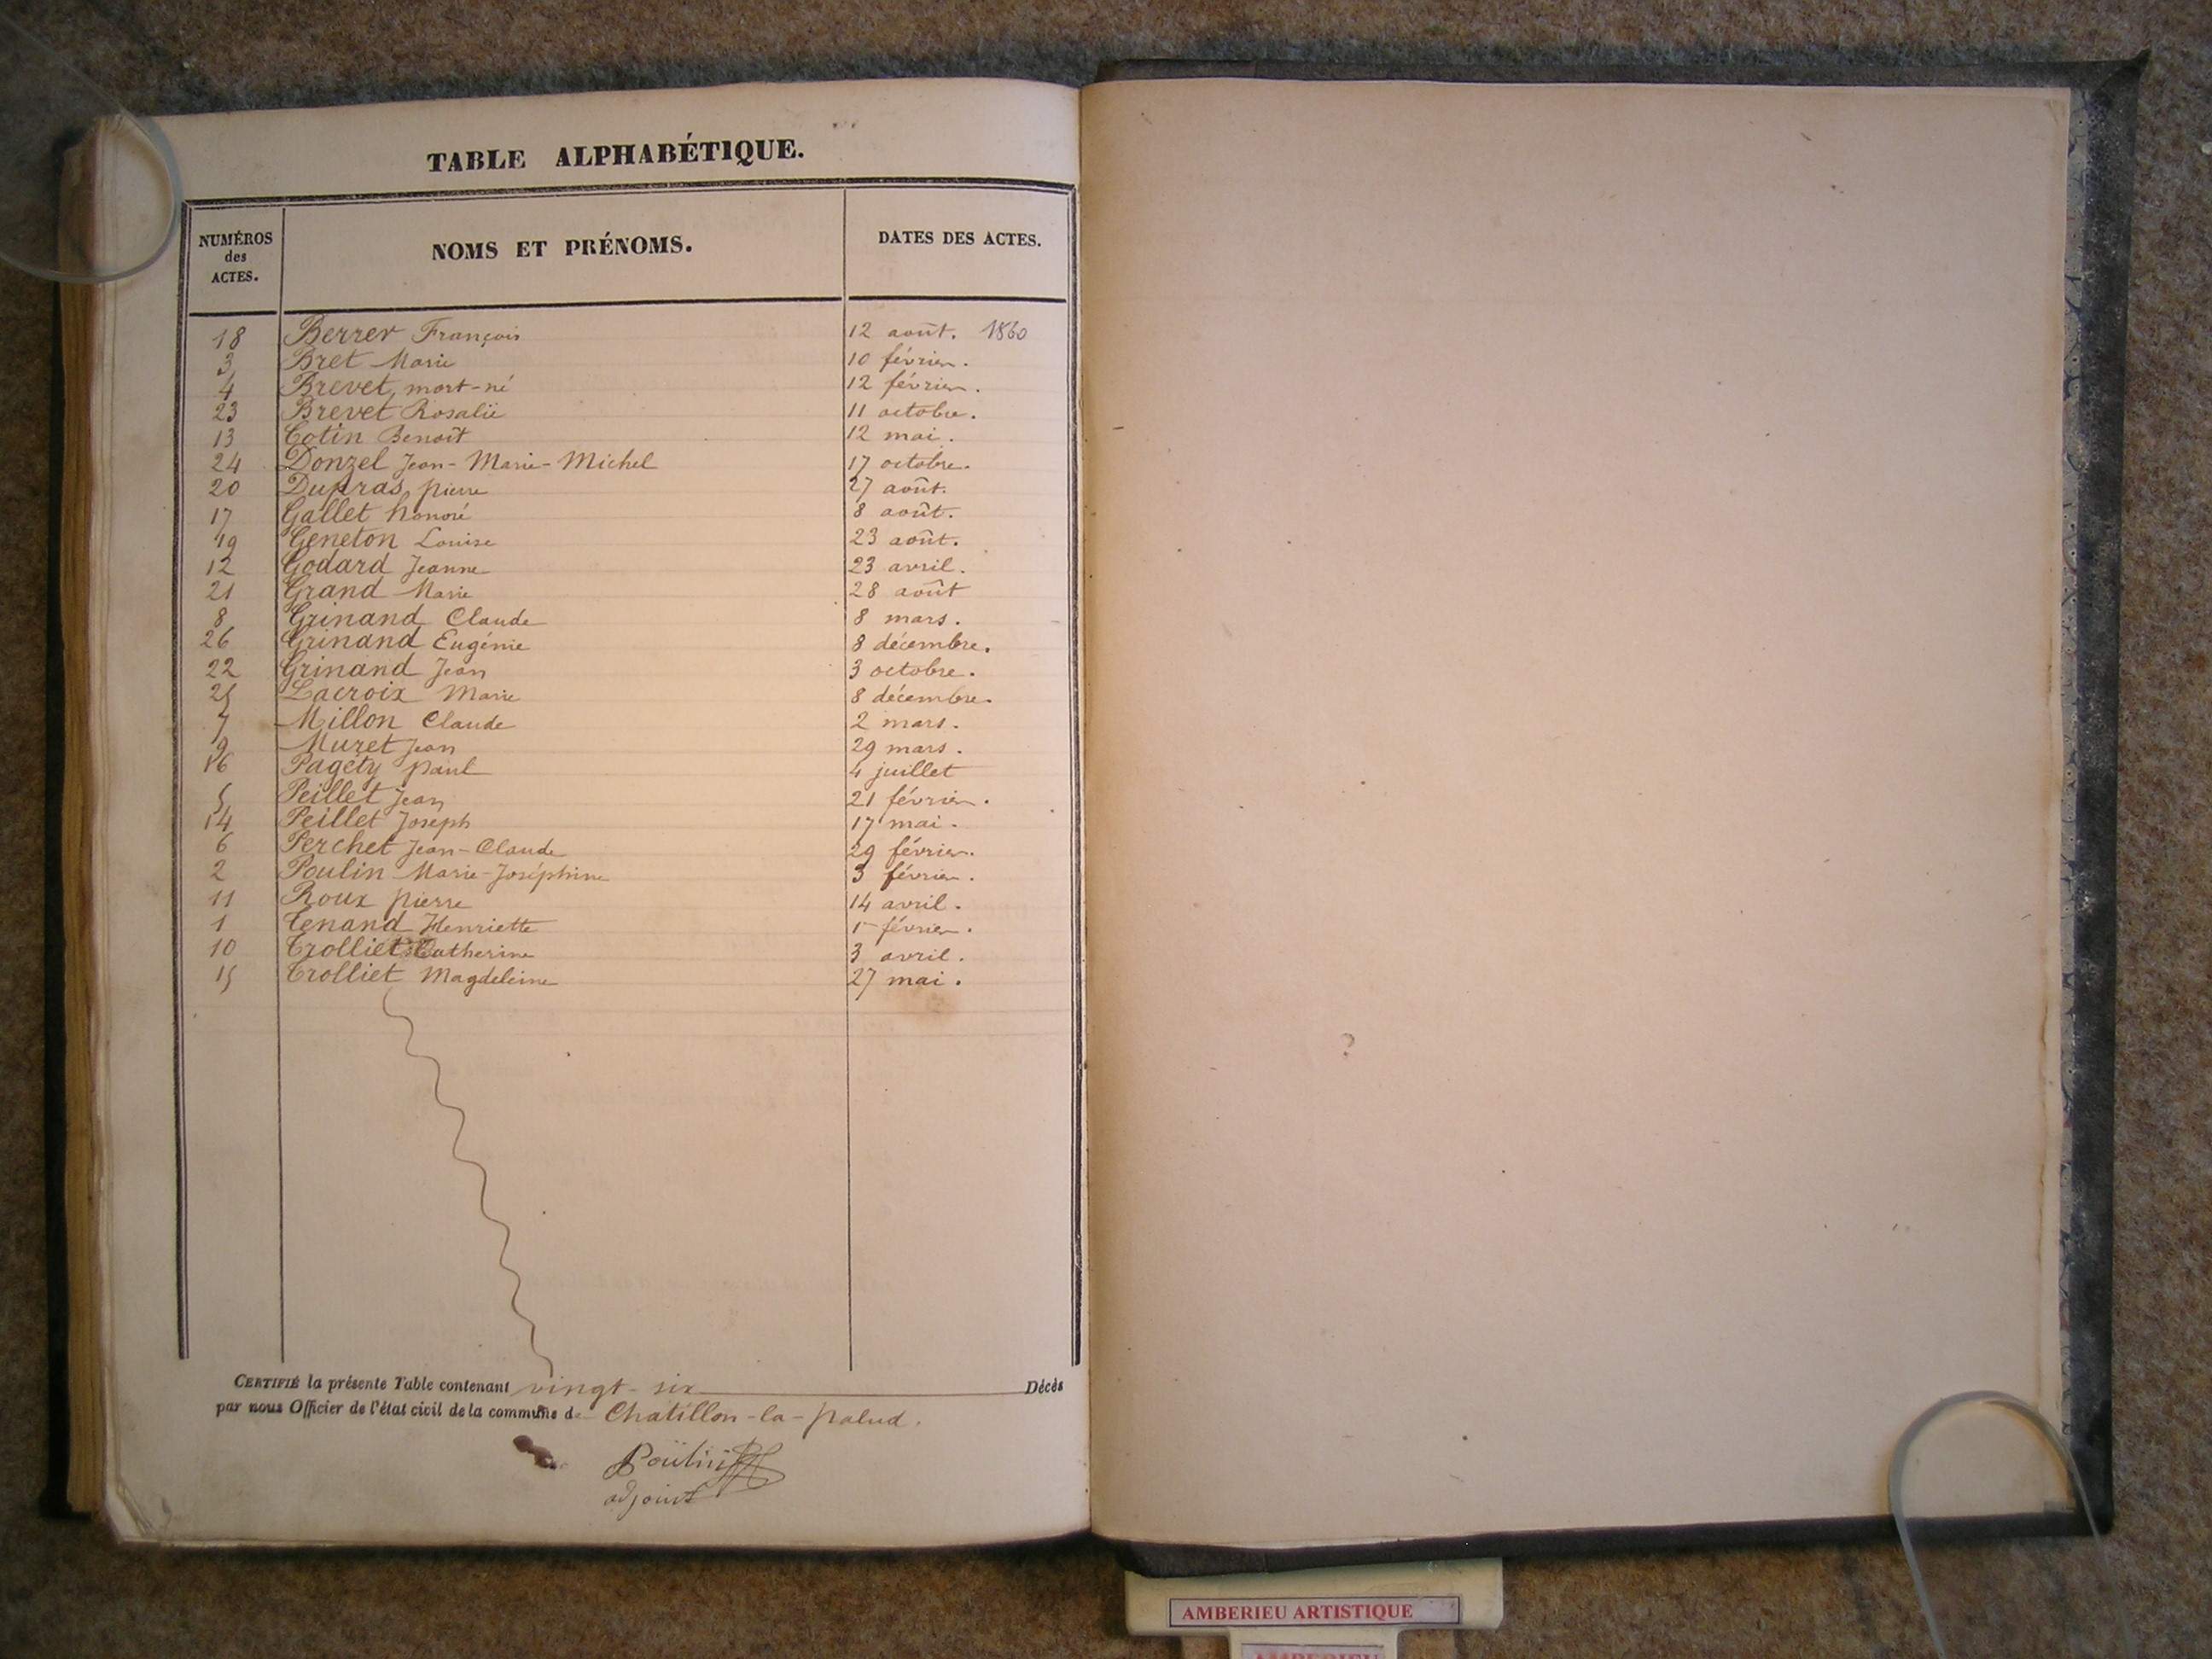 TABLE ALPHABÉTIQUE.
NUMÉROS des ACTES. NOMS ET PRÉNOMS. DATES DES ACTES.
18 Berrer François 12 août. 1860
3 Bret Marie 10 février.
4 Brevet, mort-né 12 février.
23 Brevet Rosalie 11 octobre.
13 Cotin Benoît 12 mai.
24 Donzel Jean-Marie-Michel 17 octobre.
20 Dupras, pierre 27 août.
17 Gallet honoré 8 août.
19 Geneton Louise 23 août.
12 Godard Jeanne 23 avril.
21 Grand Marie 28 août
8 Grinand Claude 8 mars.
26 Grinand Eugénie 8 décembre.
22 Grinand Jean 3 octobre.
25 Lacroix Marie 8 décembre.
7 Millon Claude 2 mars.
9 Muret Jean 29 mars.
16 Pagety paul 4 juillet
5 Peillet Jean 21 février.
14 Peillet Joseph 17 mai.
6 Perchet Jean-Claude 29 février.
2 Poulin Marie-Joséphine 3 février.
11 Roux pierre 14 avril.
1 Tenand Henriette 1er février.
10 Trolliet Catherine 3 avril.
15 Trolliet Magdeleine 27 mai.
CERTIFIÉ la présente Table contenant vingt-six Décès
par nous Officier de l'état civil de la commune de Chatillon-la-palud.
Poülin
adjoint
AMBERIEU ARTISTIQUE
AMBERIEU